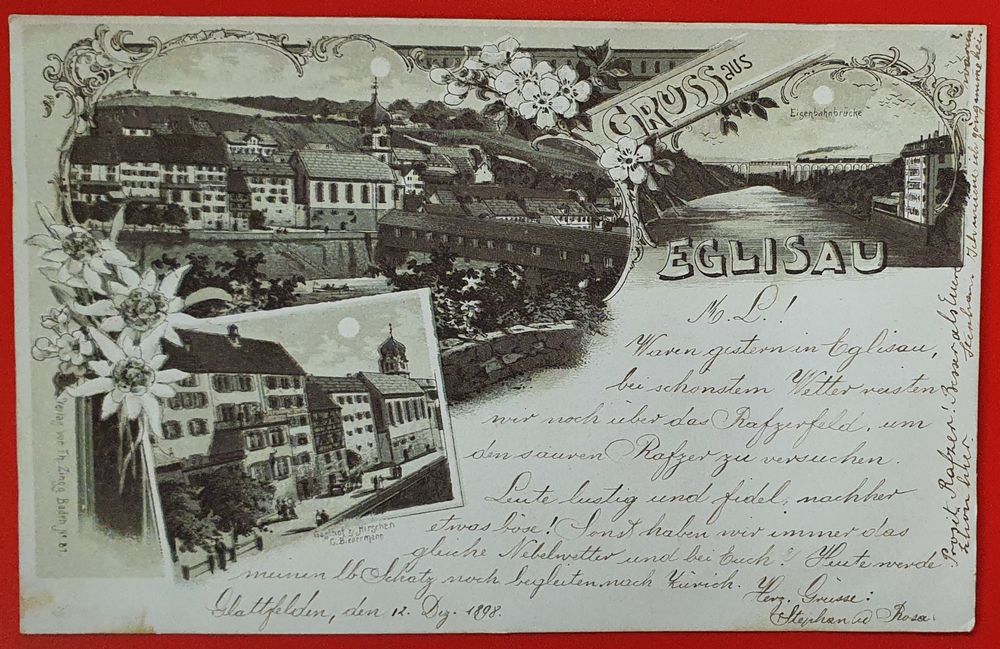 GRUSS aus
EGLISAU
Eisenbahnbrücke
Gasthof z. Hirschen
C. Biedermann
Verlag von Th. Zingg Baden No 81
M. L.!
Waren gestern in Eglisau,
bei schönstem Wetter reisten
wir noch über das Rafzerfeld, um
den sauren Rafzer zu versuchen.
Leute lustig und fidel, nachher
etwas böse! Sonst haben wir immer das
gleiche Nebelwetter und bei Euch? Heute werde
meinen lb Schatz noch begleiten nach Zürich.
Herz. Grüsse:
Glattfelden, den 12. Dez. 1898.
Stephan u Rosa.
Prosit Rafzer! Besser als
Stephan